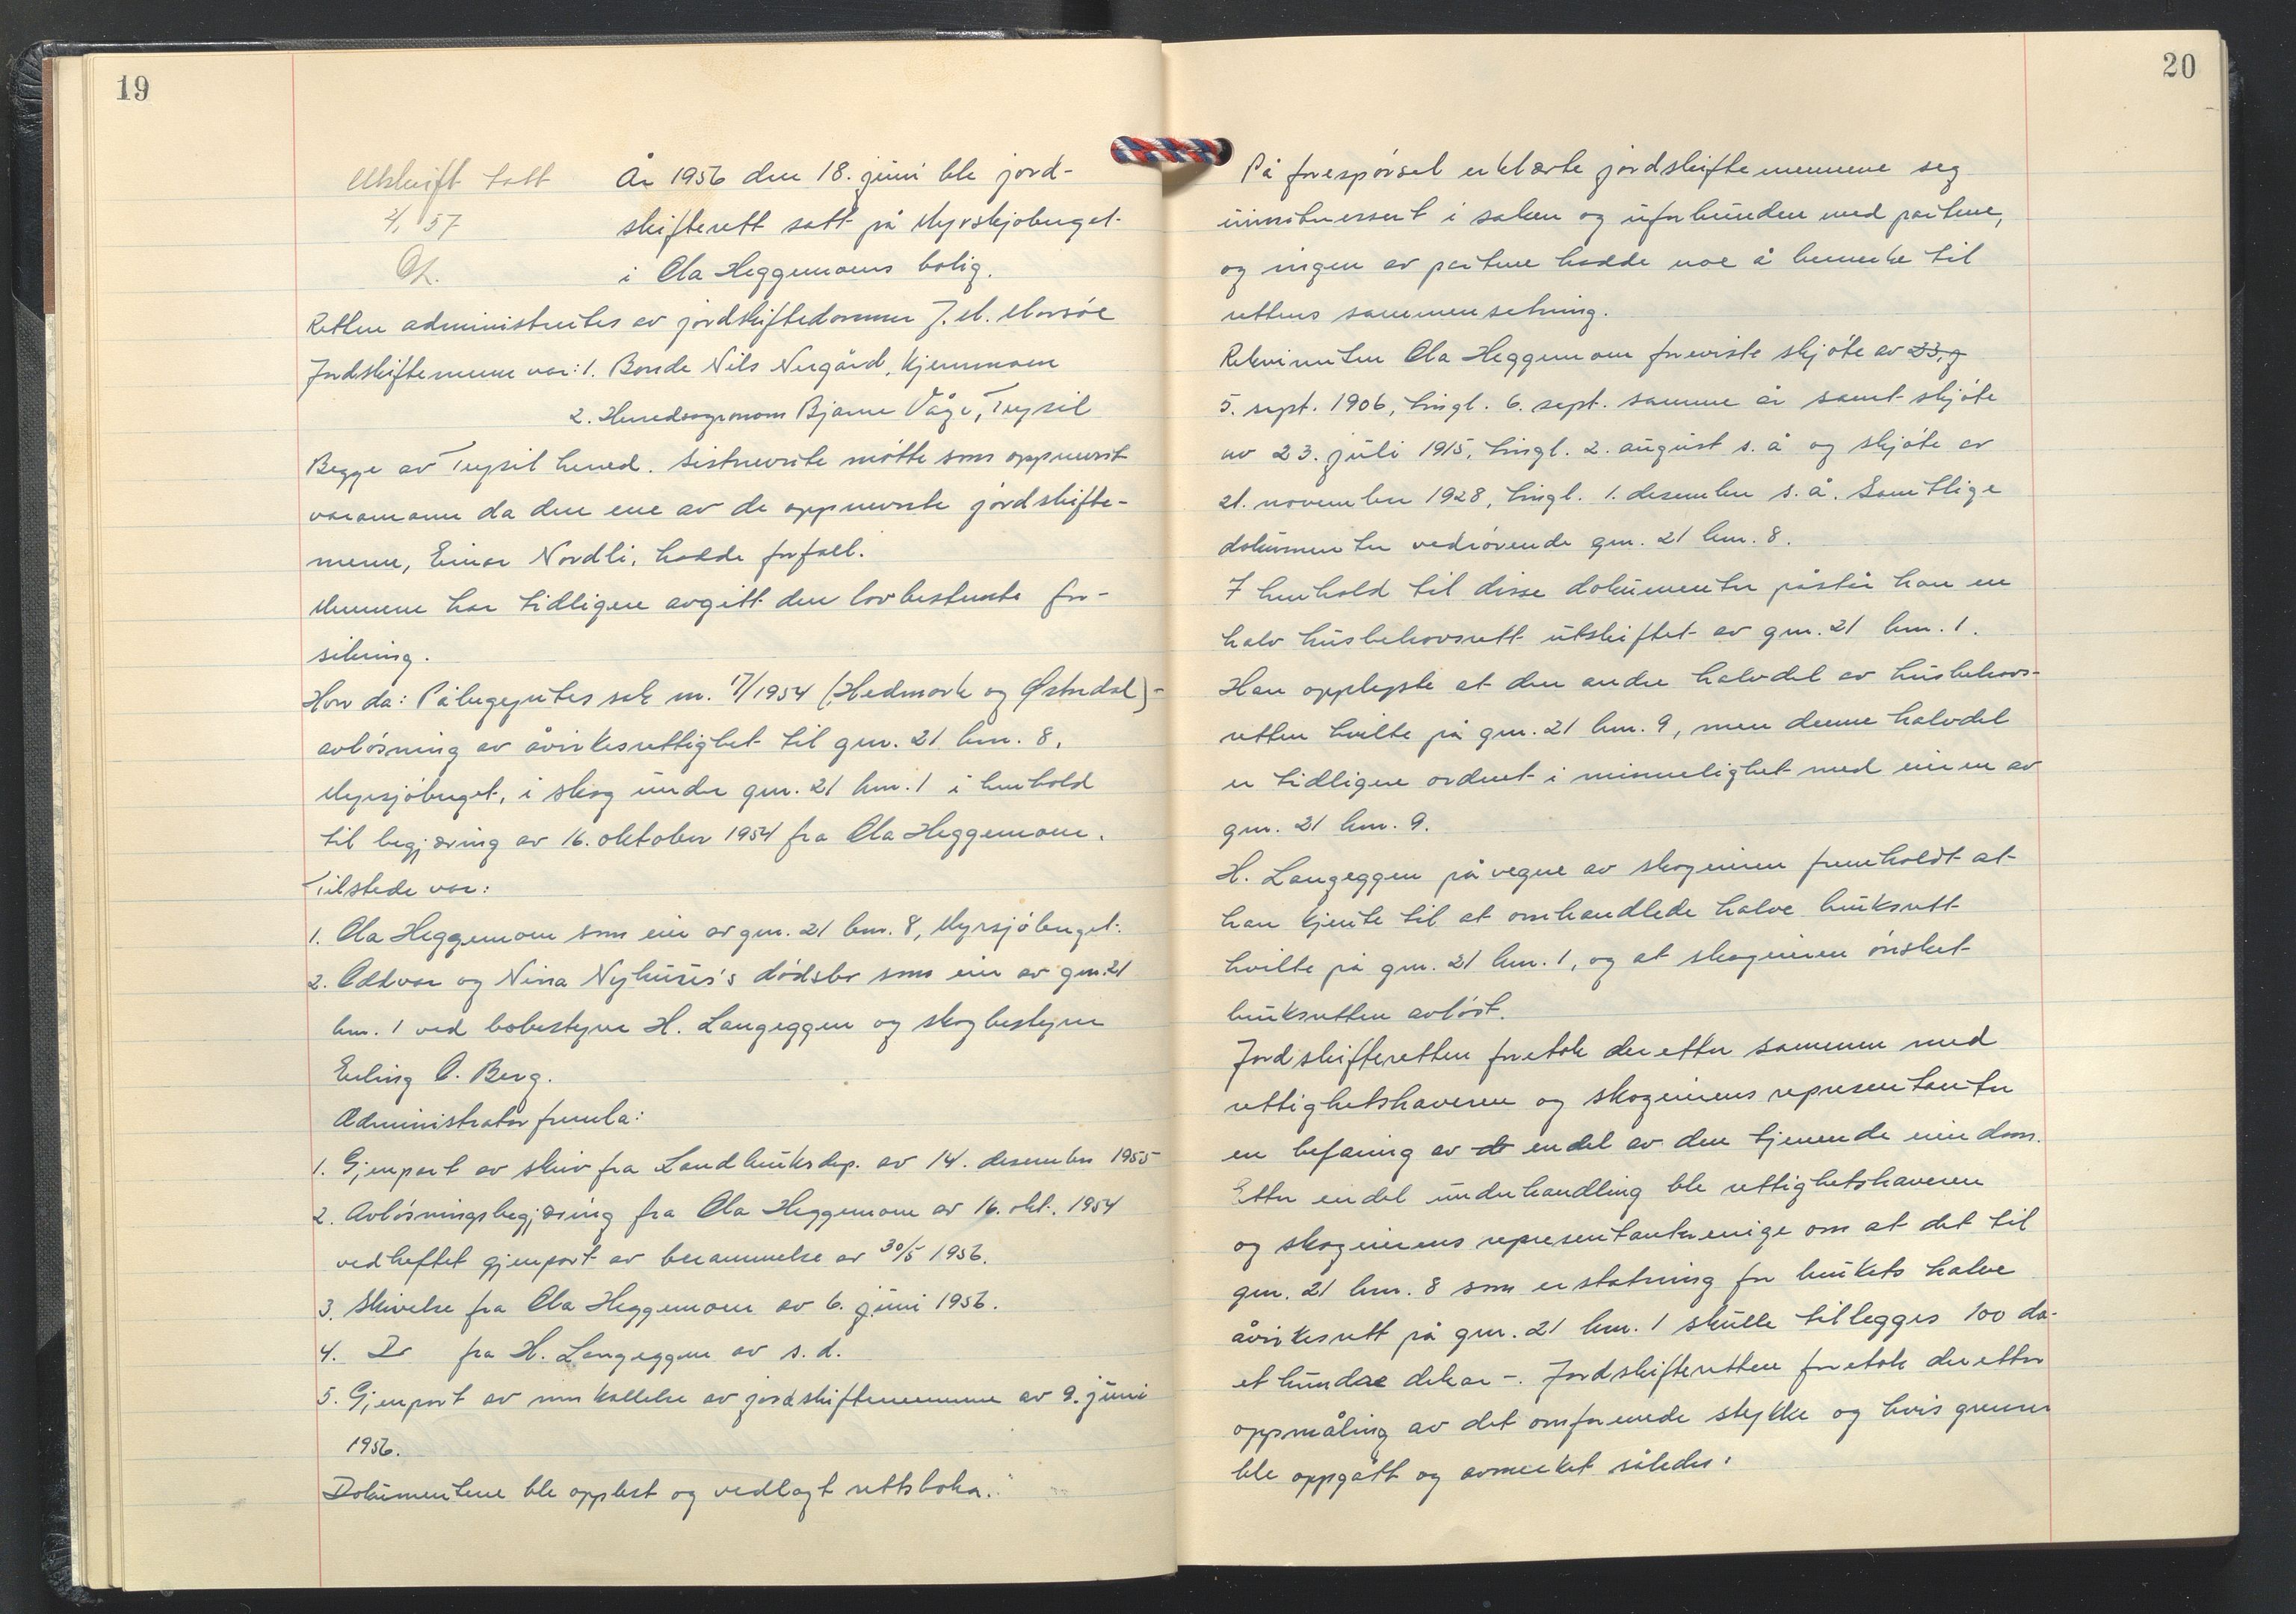 19
Utskrift tatt
4/1 57
År 1956 den 18. juni ble jord-
skifterett satt på Myrsjøberget
i Ola Heggemoens bolig.
Retten administrertes av jordskiftedommer J. M. Morsöe
Jordskiftemenn var: 1. Bonde Nils Nergård, Kjernmoen
2. Herredsagronom Bjarne Våge, Trysil
Begge av Trysil herred. Sistnevnte møtte som oppnevnt
varamann da den ene av de oppnevnte jordskifte-
menn, Einar Nordli, hadde forfall.
Mennene har tidligere avgitt den lovbestemte for-
sikring.
Hvor da: Påbegyntes sak nr. 17/1954 (Hedmark og Østerdal)-
avløsning av åvirkesrettighet til gnr. 21 bnr. 8,
Myrsjøberget, i skog under gnr. 21 bnr. 1 i henhold
til begjæring av 16. oktober 1954 fra Ola Heggemoen.
Tilstede var:
1. Ola Heggemoen som eier av gnr. 21 bnr. 8, Myrsjøberget.
2. Oddvar og Nina Nyhuus's dødsbo som eier av gnr. 21
bnr. 1 ved bobestyrer H. Langeggen og skogbestyrer
Erling O. Berg.
Administrator fremla:
1. Gjenpart av skriv fra Landbruksdep. av 14. desember 1955
2. Avløsningsbegjæring fra Ola Heggemoen av 16. okt. 1954
vedheftet gjenpart av berammelse av 30/5 1956.
3. Skrivelse fra Ola Heggemoen av 6. juni 1956.
4. Do fra H. Langeggen av s. d.
5. Gjenpart av innkallelse av jordskiftemennene av 9. juni
1956.
Dokumentene ble opplest og vedlagt rettsboka.
20
På forespørsel erklærte jordskiftemennene seg
uinteressert i saken og uforbunden med partene,
og ingen av partene hadde noe å bemerke til
rettens sammensetning.
Rekvirenten Ola Heggemoen foreviste skjøte av 23. j
5. sept. 1906, tingl. 6. sept. samme år samt skjøte
av 23. juli 1915, tingl. 2. august s. å og skjøte av
21. november 1928, tingl. 1. desember s. å. Samtlige
dokumenter vedrørende gnr. 21 bnr. 8.
I henhold til disse dokumenter påstår han en
halv husbehovsrett utskiftet av gnr. 21 bnr. 1.
Han opplyste at den andre halvdel av husbehovs-
retten hvilte på gnr. 21 bnr. 9, men denne halvdel
er tidligere ordnet i minnelighet med eieren av
gnr. 21 bnr. 9.
H. Langeggen på vegne av skogeieren fremholdt at
han kjente til at omhandlede halve bruksrett
hvilte på gnr. 21 bnr. 1, og at skogeieren ønsket
bruksretten avløst.
Jordskifteretten foretok deretter sammen med
rettighetshaveren og skogeierens representanter
en befaring av de endel av den tjenende eiendom.
Etter endel underhandling ble rettighetshaveren
og skogeierens representanter enige om at det til
gnr. 21 bnr. 8 som erstatning for brukets halve
åvirkesrett på gnr. 21 bnr. 1 skulle tillegges 100 da-
et hundre dekar -. Jordskifteretten foretok deretter
oppmåling av det omforenede stykke og hvis grenser
ble oppgått og avmerket således: